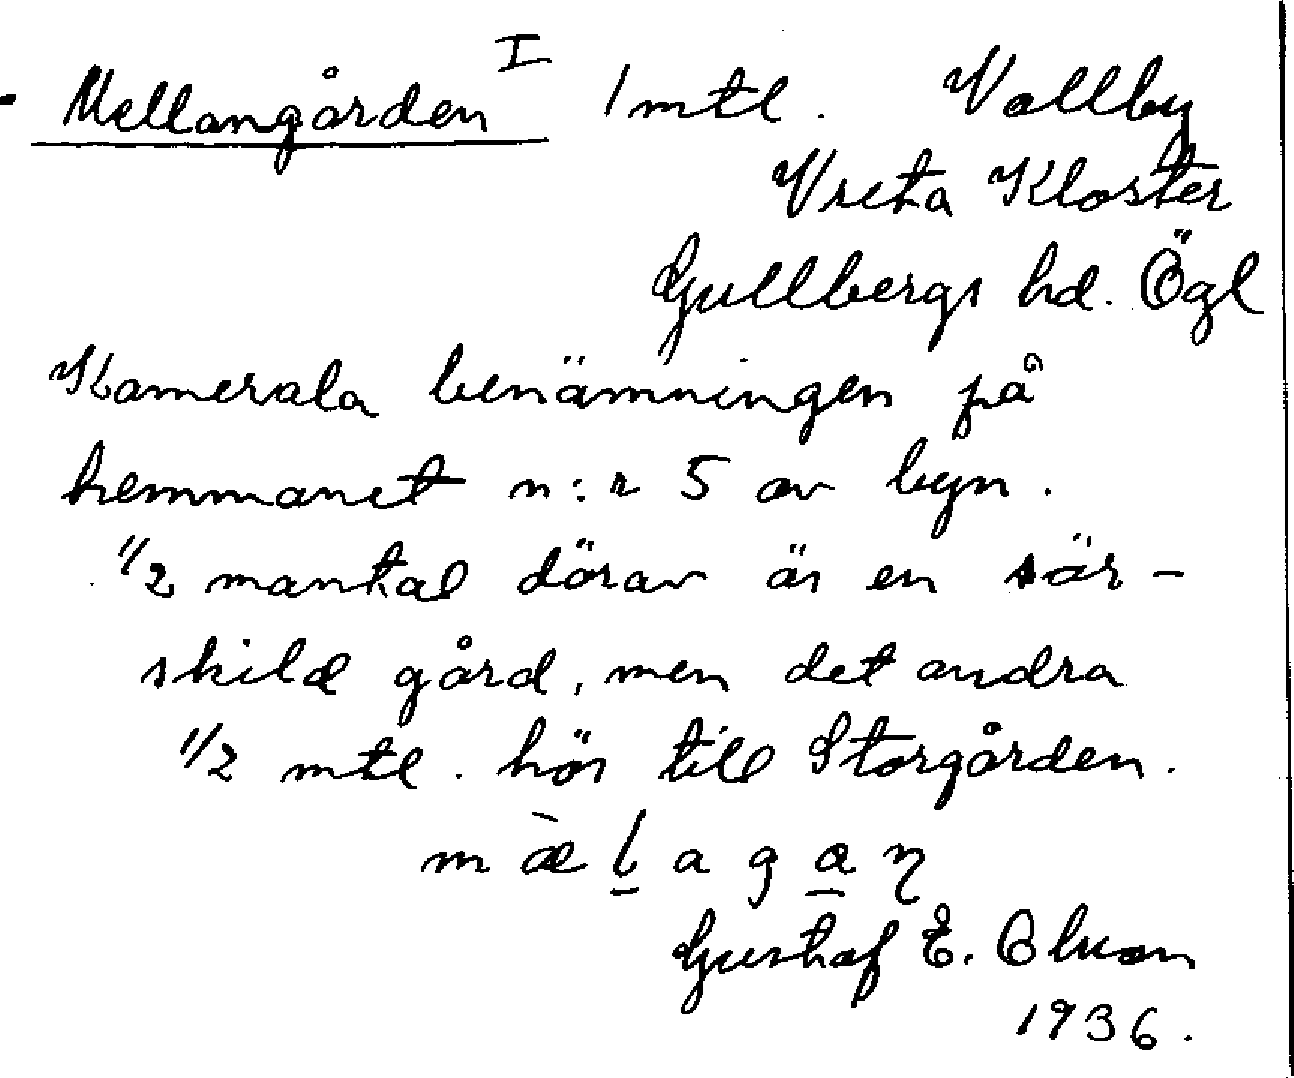 Mellangården I 1 mtl. Vallby
Vreta Kloster
Gullbergs hd. Ögl
Kamerala benämningen på
hemmanet n:r 5 av byn.
1/2 mantal därav är en sär-
skild gård, men det andra
1/2 mtl. hör till Storgården.
Gustaf E. Olsson
1936.